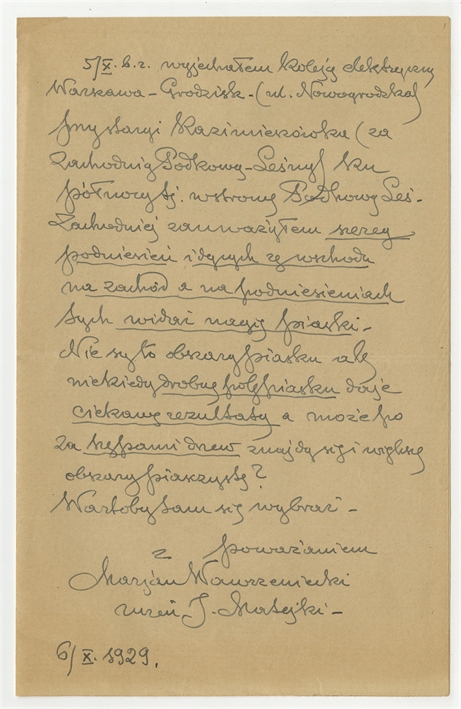 5/X. b.r. wyjechałem koleją elektryczną
Warszawa - Grodzisk - (ul. Nowogrodzka)
przystanji Kazimierówka (za
Zachodnią Podkową-Leśną) ku
północy tj. w stronę Podkowy Leś-
Zachodniej zauważyłem szereg
podniesień idących ze wschodu
na zachód a na podniesieniach
tych widać nagie piaski -
Nie są to obszary piasku ale
niekiedy drobne pole piasku daje
ciekawe rezultaty a może po
za kępami drzew znajdą się i większe
obszary piaszczyste?
Wartoby tam się wybrać -
z poważaniem
Marjan Wawrzeniecki
uczeń J. Matejki -
6/X. 1929.